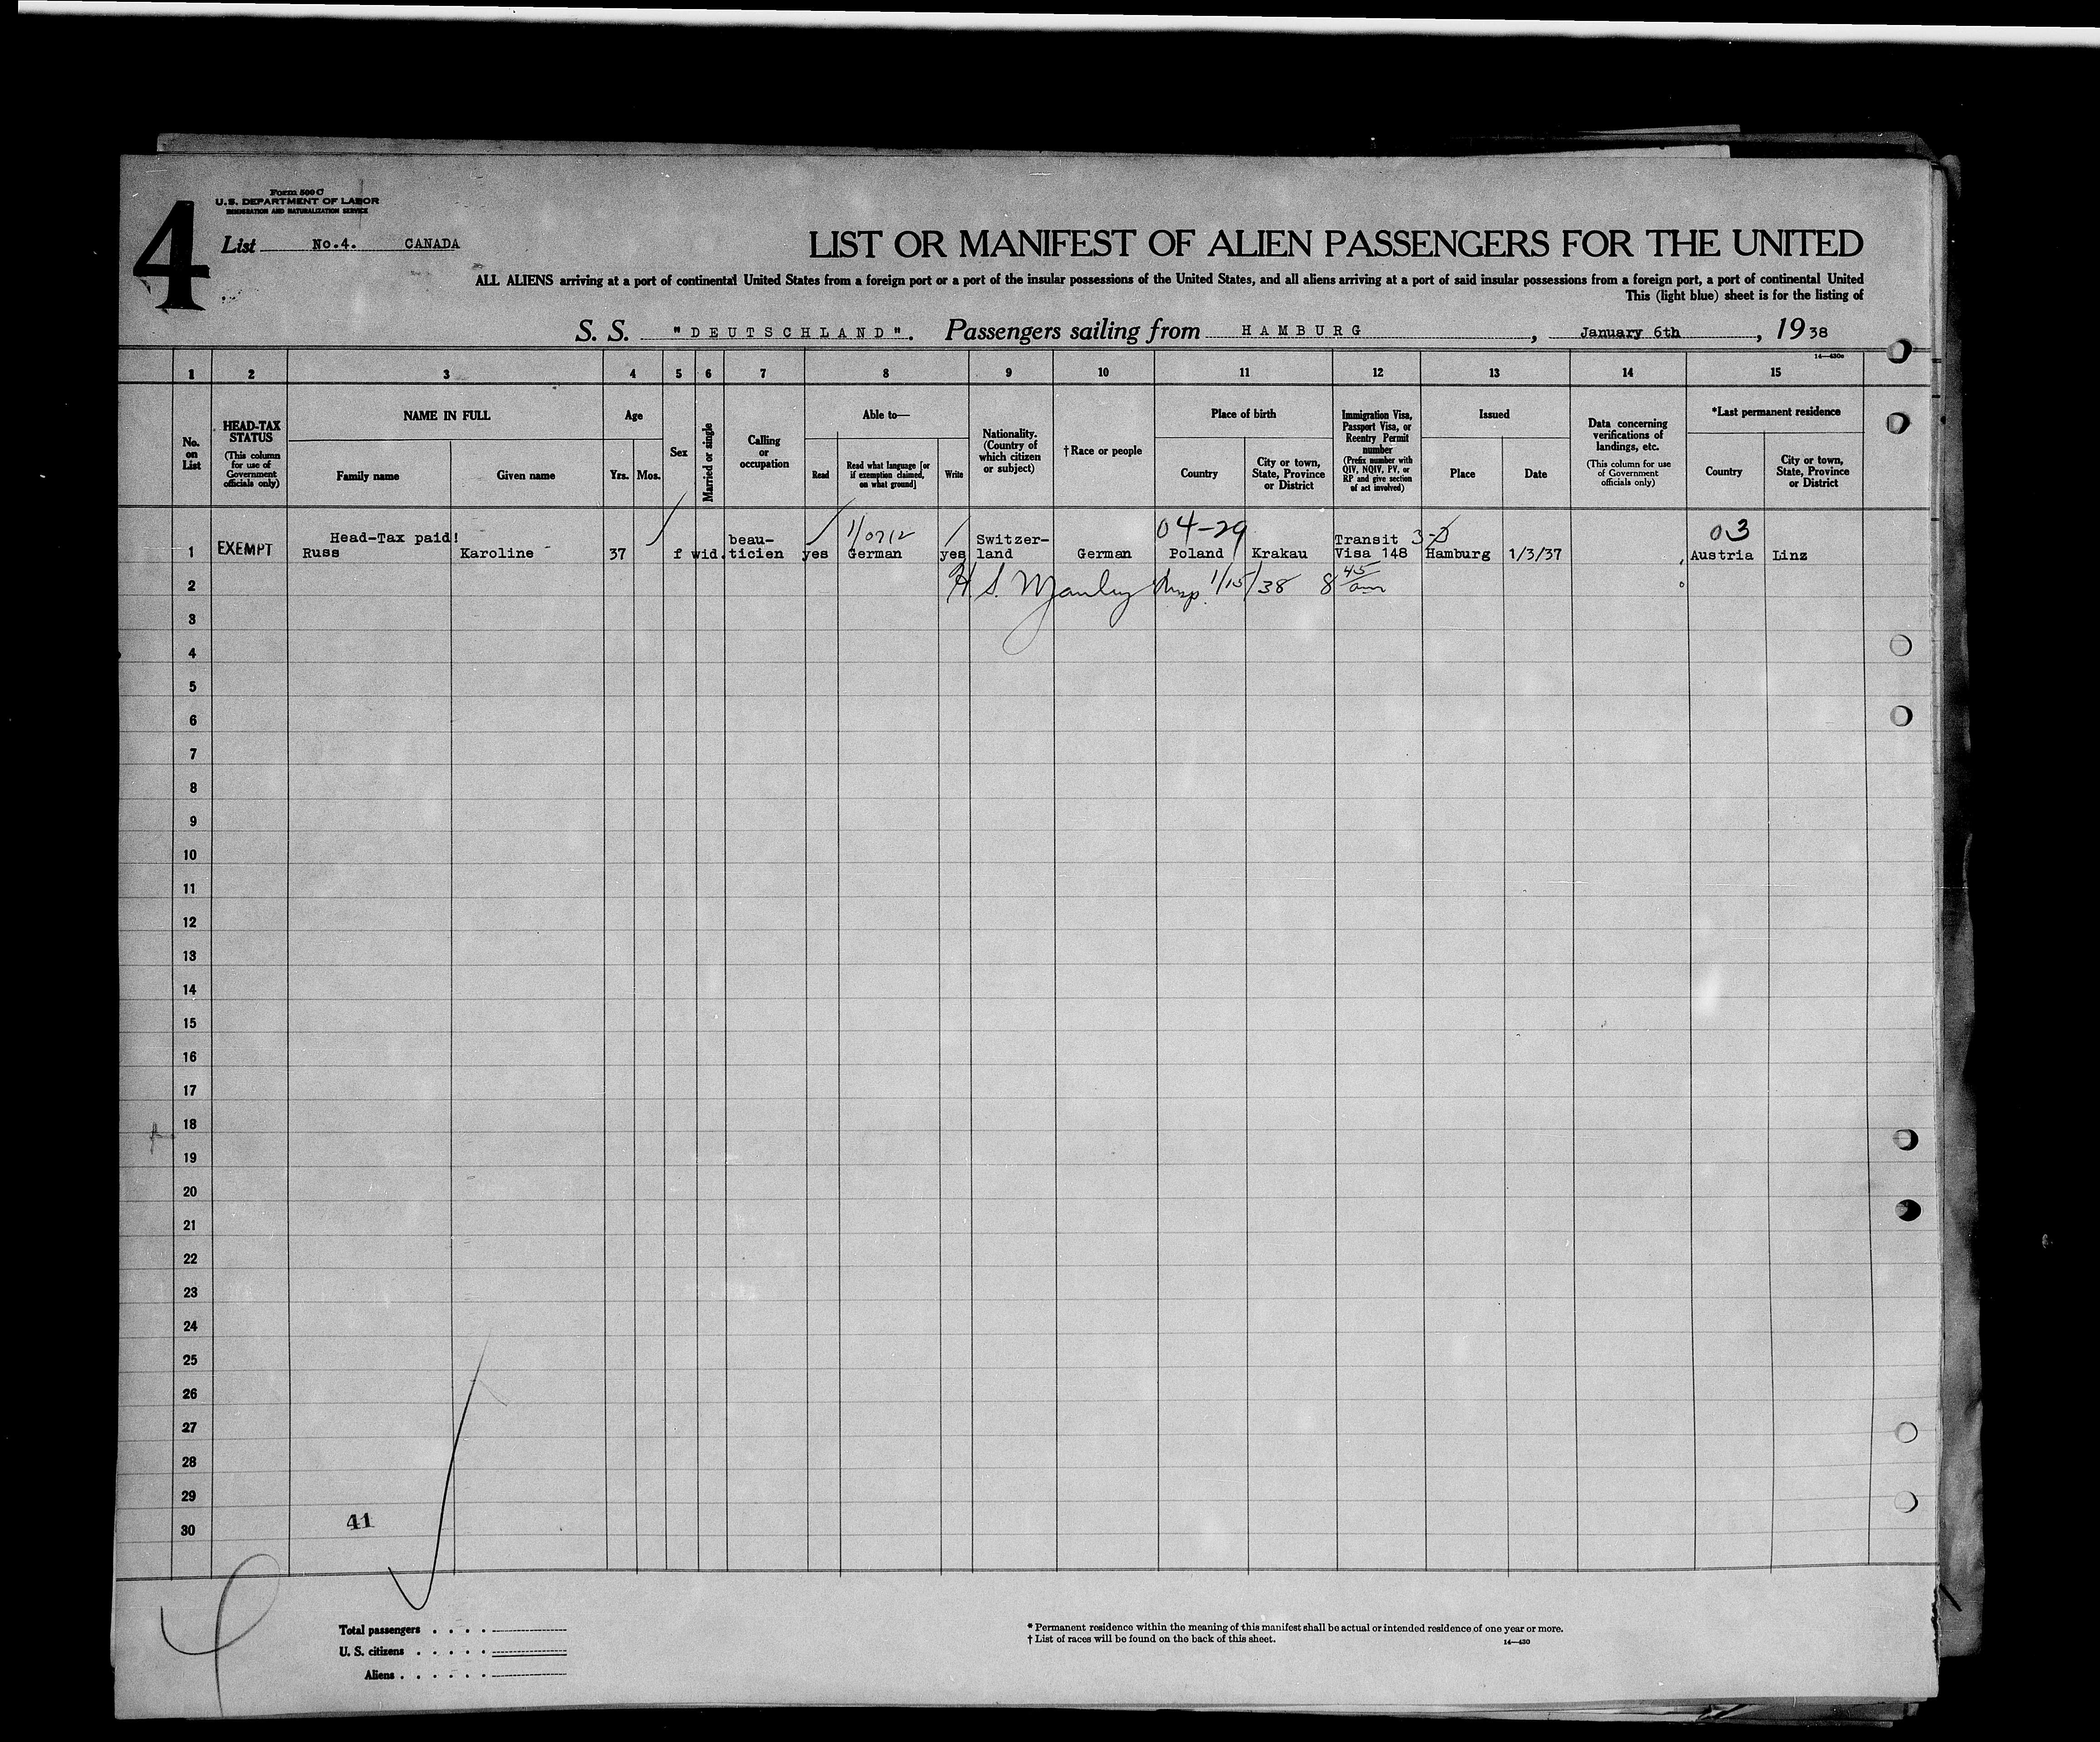 4
Form 500 C
U.S. DEPARTMENT OF LABOR
IMMIGRATION AND NATURALIZATION SERVICE
List No.4. CANADA
LIST OR MANIFEST OF ALIEN PASSENGERS FOR THE UNITED
ALL ALIENS arriving at a port of continental United States from a foreign port or a port of the insular possessions of the United States, and all aliens arriving at a port of said insular possessions from a foreign port, a port of continental United
This (light blue) sheet is for the listing of
S. S. "DEUTSCHLAND". Passengers sailing from HAMBURG, January 6th, 1938
14—430a
1 2 3 4 5 6 7 8 9 10 11 12 13 14 15
No. on List
HEAD-TAX STATUS (This column for use of Government officials only)
NAME IN FULL
Family name
Given name
Age
Yrs. Mos.
Sex
Married or single
Calling or occupation
Able to—
Read
Read what language [or if exemption claimed, on what ground]
Write
Nationality. (Country of which citizen or subject)
†Race or people
Place of birth
Country
City or town, State, Province or District
Immigration Visa, Passport Visa, or Reentry Permit number (Prefix number with QIV, NQIV, PV, or RP and give section of act involved)
Issued
Place
Date
Data concerning verifications of landings, etc. (This column for use of Government officials only)
*Last permanent residence
Country
City or town, State, Province or District
Head-Tax paid! beau- Switzer- 04-29 Transit 3-2 03
1 EXEMPT Russ Karoline 37 f wid. ticien yes German yes land German Poland Krakau Visa 148 Hamburg 1/3/37 Austria Linz
2 H. S. Manley Insp. 1/15/38 8 45 am
3
4
5
6
7
8
9
10
11
12
13
14
15
16
17
18
19
20
21
22
23
24
25
26
27
28
29
30
41
Total passengers
U. S. citizens
Aliens
* Permanent residence within the meaning of this manifest shall be actual or intended residence of one year or more.
† List of races will be found on the back of this sheet.
14—430